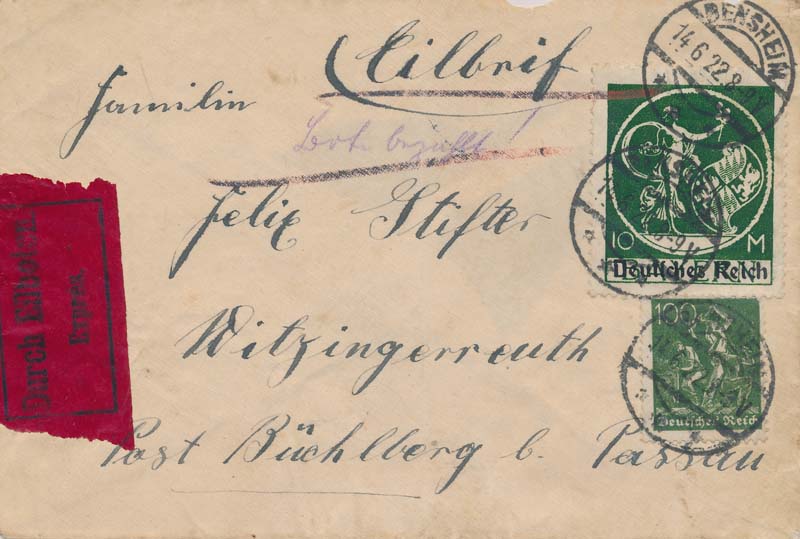 Eilbrif
Familin
Bote bezahlt!
Felix Stifter
Witzingerreuth
Post Büchlberg b. Passau
Durch Eilboten
Expres.
BENSHEIM
14.6.22.8-
10 M
Deutsches Reich
100
Deutsches Reich